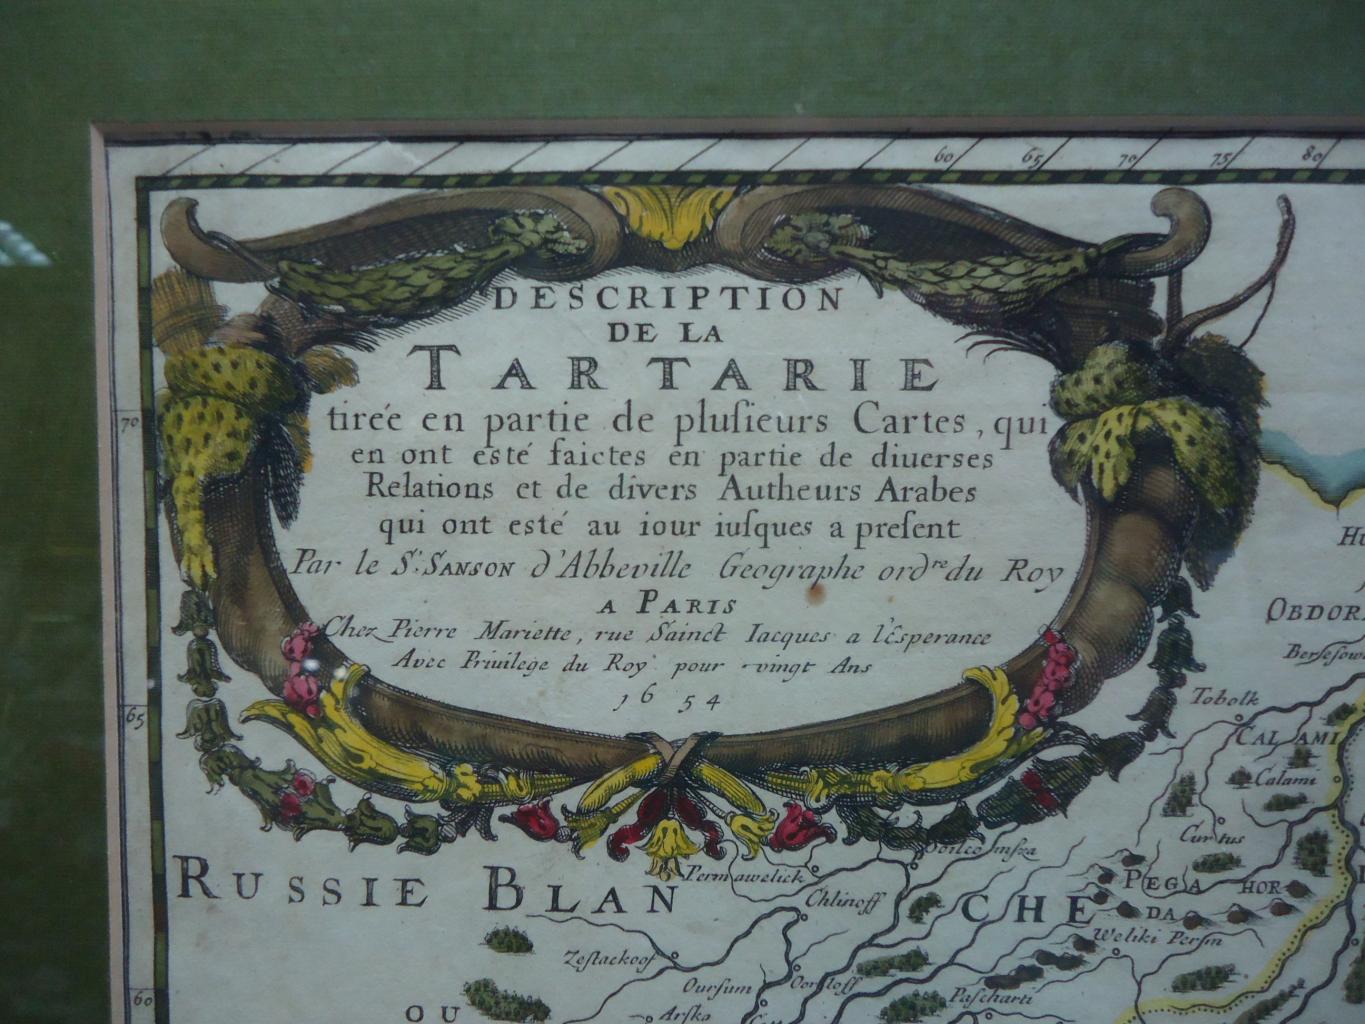 60 65 70 75 80
DESCRIPTION
DE LA
TARTARIE
tirée en partie de plusieurs Cartes, qui
en ont esté faictes en partie de diuerses
Relations et de divers Autheurs Arabes
qui ont esté au iour iusques a present
Par le Sr. SANSON d'Abbeville Geographe ordre du Roy
A PARIS
Chez Pierre Mariette, rue Sainct Iacques a l'Esperance
Avec Priuilege du Roy pour vingt Ans
1654
70
OBDOR
Tobolk
65
CALAMI
Calami
Permawelick
RUSSIE BLANCHE
Chlinoff
PEGA HOR
DA
Weliki Persin
Zestackoof
Oursum
Pascharti
60
OU
Arska